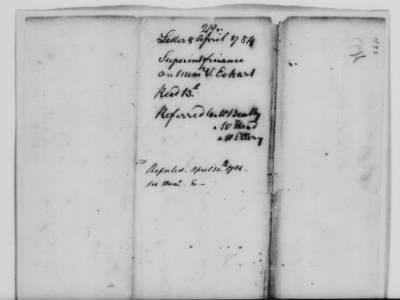 219.
Letter 8 April 1784
Superint finance
on mem V. Eckart
Read 13th
Referred to Mr Beatty
Mr Hand
Mr Ellery
Reported April 14th 1784
see Mem.